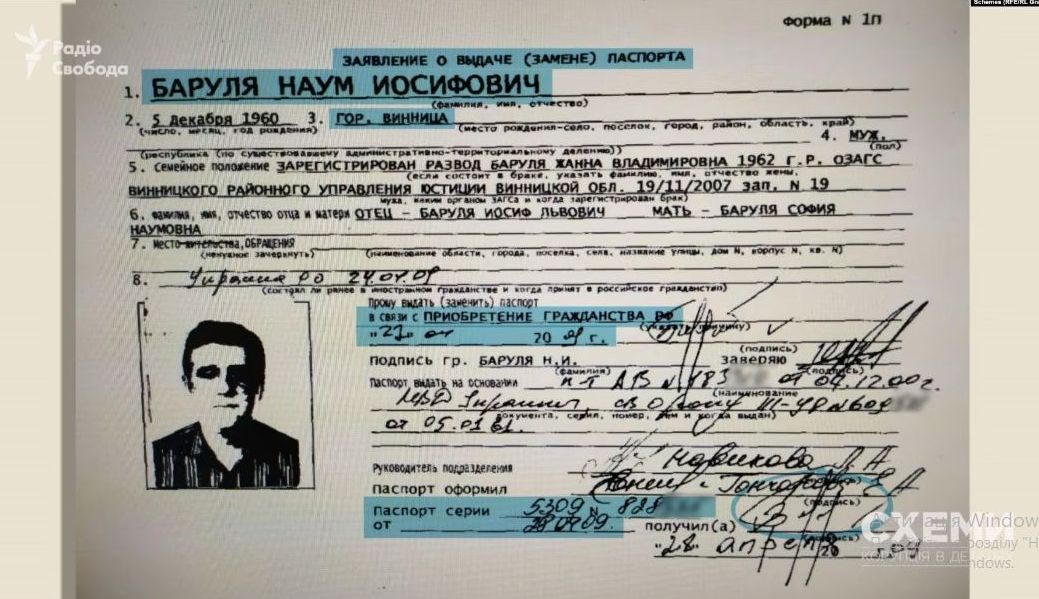 Schemes (RFE/RL
Радіо
Свобода
Форма N 1П
ЗАЯВЛЕНИЕ О ВЫДАЧЕ (ЗАМЕНЕ) ПАСПОРТА
1. БАРУЛЯ НАУМ ИОСИФОВИЧ
(фамилия, имя, отчество)
2. 5 декабря 1960 3. ГОР. ВИННИЦА
(число, месяц, год рождения) (место рождения-село, поселок, город, район, область, край)
4. МУЖ.
(республика (по существовавшему административно-территориальному делению)) (пол)
5. Семейное положение ЗАРЕГИСТРИРОВАН РАЗВОД БАРУЛЯ ЖАННА ВЛАДИМИРОВНА 1962 Г.Р. ОЗАГС
(если состоит в браке, указать фамилию, имя, отчество жены,
ВИННИЦКОГО РАЙОННОГО УПРАВЛЕНИЯ ЮСТИЦИИ ВИННИЦКОЙ ОБЛ. 19/11/2007 зап. N 19
мужа, каким органом ЗАГСа и когда зарегистрирован брак)
6. фамилия, имя, отчество отца и матери ОТЕЦ - БАРУЛЯ ИОСИФ ЛЬВОВИЧ МАТЬ - БАРУЛЯ СОФИЯ
НАУМОВНА
7. место жительства, ОБРАЩЕНИЯ
(ненужное зачеркнуть) (наименование области, города, поселка, села, название улицы, дом N, корпус N, кв. N)
8. Украина до 24.04.09
(состоял ли ранее в иностранном гражданстве и когда принят в российское гражданство)
Прошу выдать (заменить) паспорт
в связи с ПРИОБРЕТЕНИЕ ГРАЖДАНСТВА РФ
20 г. (указать причину)
(подпись)
подпись гр. БАРУЛЯ Н.И. заверяю
(фамилия) (подпись)
Паспорт выдать на основании п-т АВ N 183 от 04.12.00г.
(наименование
МВД Украины св О рожд III-УР N609
документа, серия, номер, кем и когда выдан)
от 05.01.61.
Руководитель подразделения Новикова Л А
Паспорт оформил
(подпись)
Паспорт серии 5309 N 828
от 28.04.09. получил(а)
(подпись)
"28" апреля 20 г.
СХЕМИ
КОРУПЦІЯ В ДЕ
Активация Window
розділу "Н
ndows.